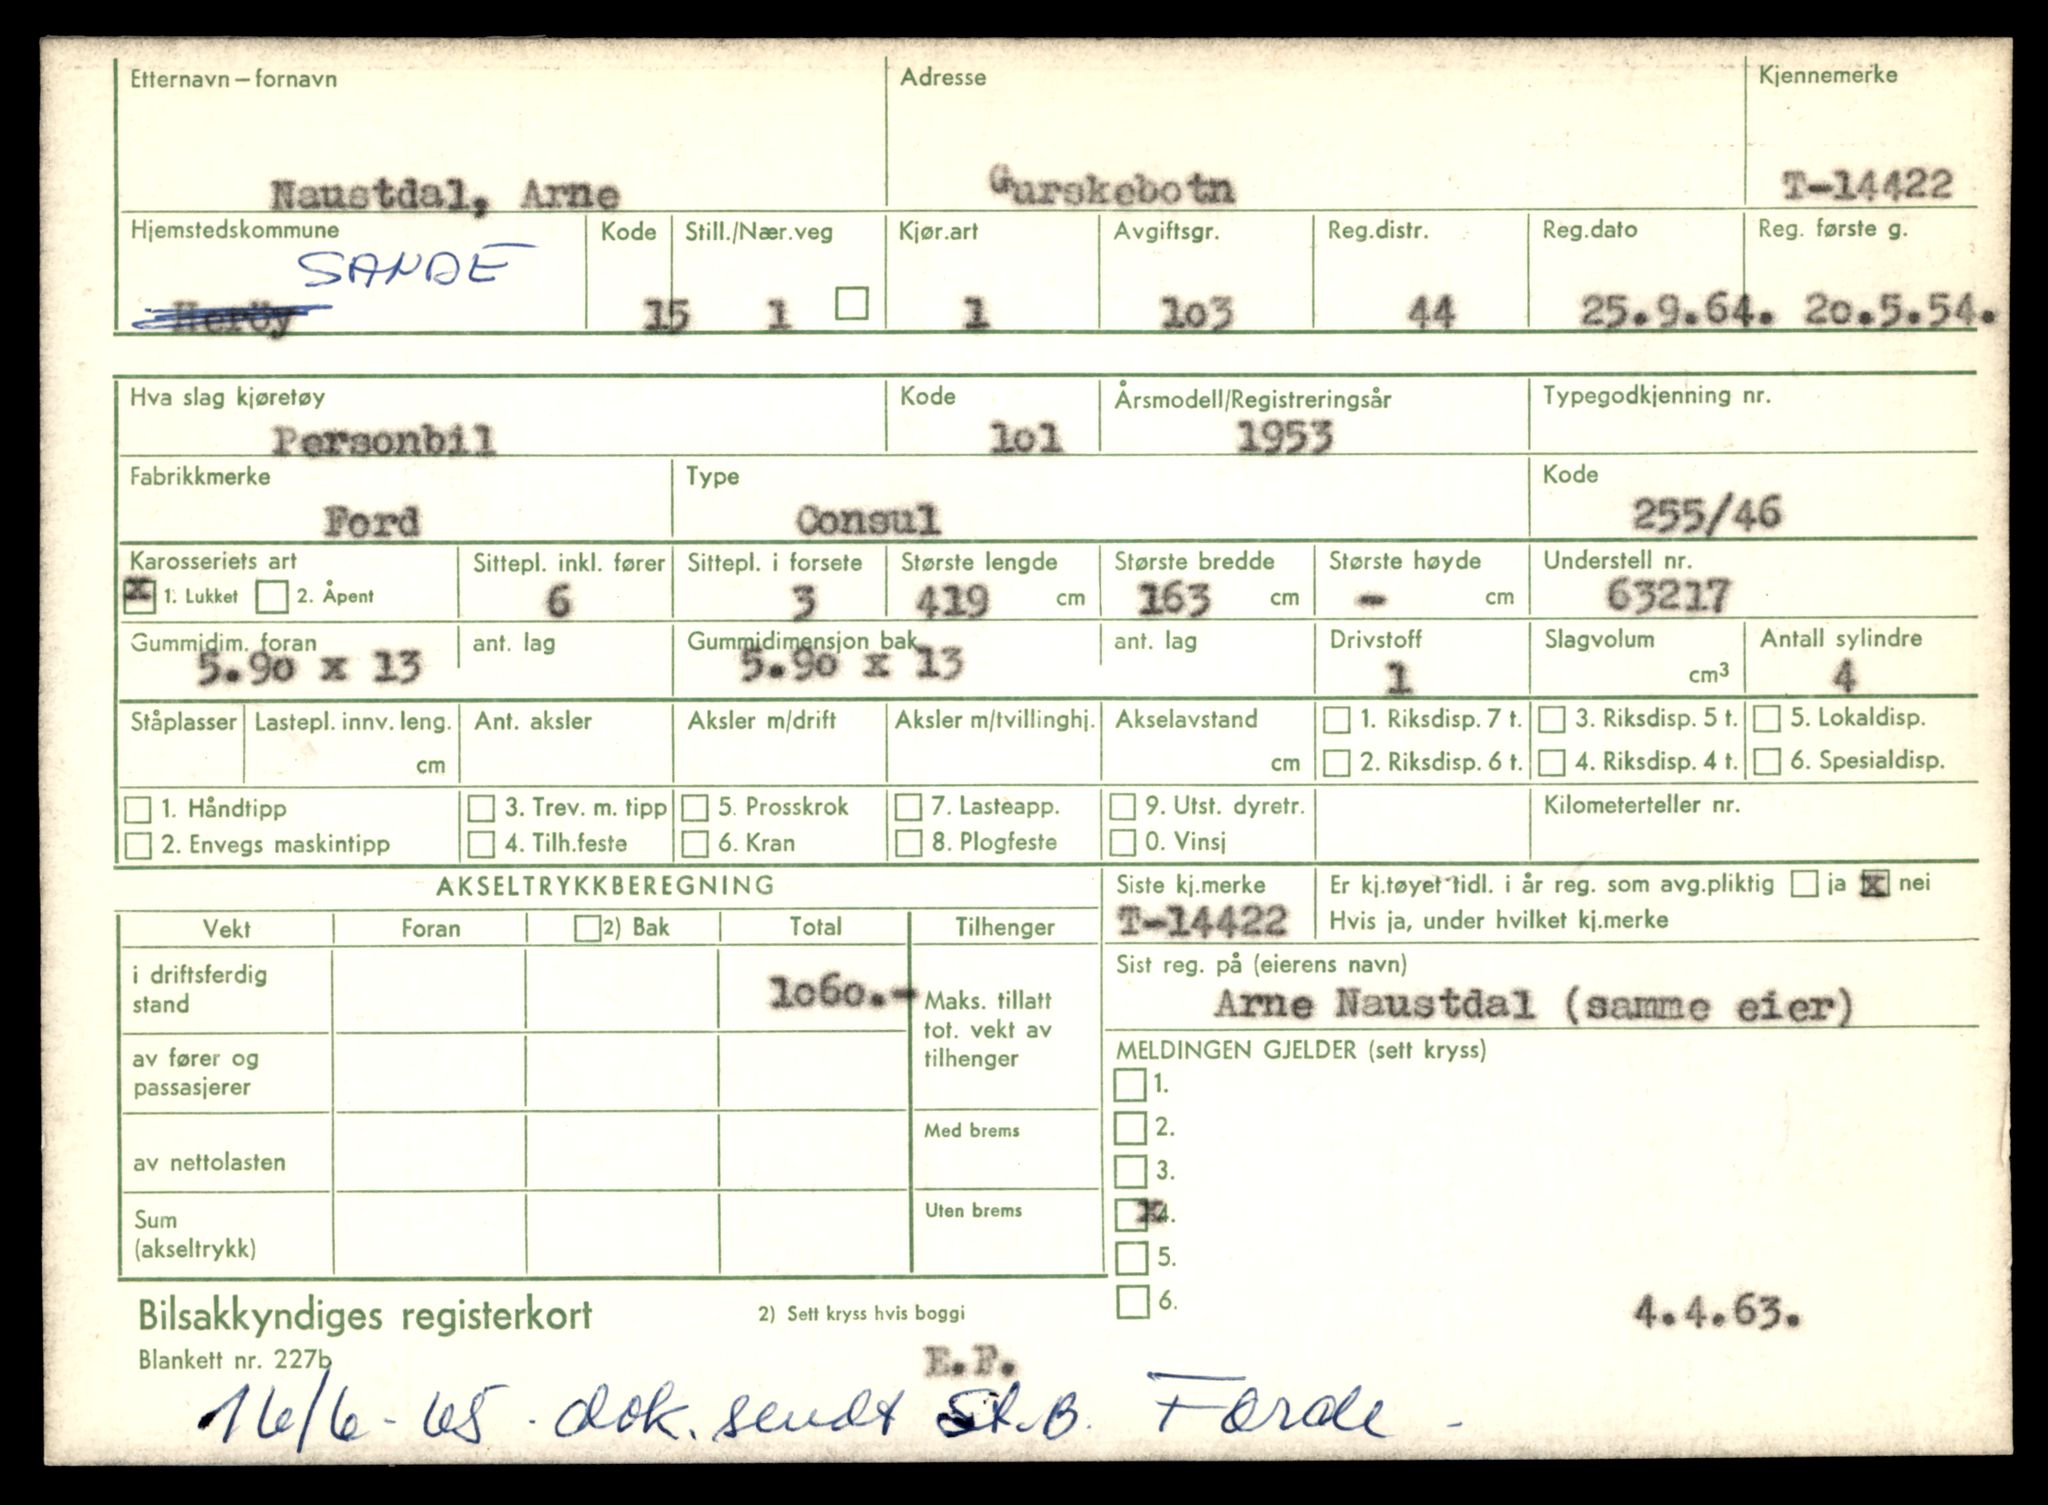 Etternavn – fornavn Adresse Kjennemerke
Naustdal, Arne Gurskebotn T-14422
Hjemstedskommune Kode Still./Nær.veg Kjør.art Avgiftsgr. Reg.distr. Reg.dato Reg. første g.
SANDE
Herøy 15 1 1 1o3 44 25.9.64. 2o.5.54.
Hva slag kjøretøy Kode Årsmodell/Registreringsår Typegodkjenning nr.
Personbil 1o1 1953
Fabrikkmerke Type Kode
Ford Consul 255/46
Karosseriets art Sittepl. inkl. fører Sittepl. i forsete Største lengde Største bredde Største høyde Understell nr.
x 1. Lukket 2. Åpent 6 3 419 cm 163 cm - cm 63217
Gummidim. foran ant. lag Gummidimensjon bak ant. lag Drivstoff Slagvolum Antall sylindre
5.9o x 13 5.9o x 13 1 cm3 4
Ståplasser Lastepl. innv. leng. Ant. aksler Aksler m/drift Aksler m/tvillinghj. Akselavstand 1. Riksdisp. 7 t. 3. Riksdisp. 5 t. 5. Lokaldisp.
cm cm 2. Riksdisp. 6 t. 4. Riksdisp. 4 t. 6. Spesialdisp.
1. Håndtipp 3. Trev. m. tipp 5. Prosskrok 7. Lasteapp. 9. Utst. dyretr. Kilometerteller nr.
2. Envegs maskintipp 4. Tilh.feste 6. Kran 8. Plogfeste 0. Vinsj
AKSELTRYKKBEREGNING Siste kj.merke Er kj.tøyet tidl. i år reg. som avg.pliktig ja x nei
T-14422 Hvis ja, under hvilket kj.merke
Vekt Foran 2) Bak Total Tilhenger
i driftsferdig stand 1o6o.- Maks. tillatt tot. vekt av tilhenger
Sist reg. på (eierens navn)
Arne Naustdal (samme eier)
av fører og passasjerer
MELDINGEN GJELDER (sett kryss)
1.
2.
Med brems
av nettolasten
3.
x4.
Uten brems
Sum (akseltrykk)
5.
6.
4.4.63.
Bilsakkyndiges registerkort 2) Sett kryss hvis boggi
Blankett nr. 227b E.F.
16/6-65. dok. sendt St.B. Førde -